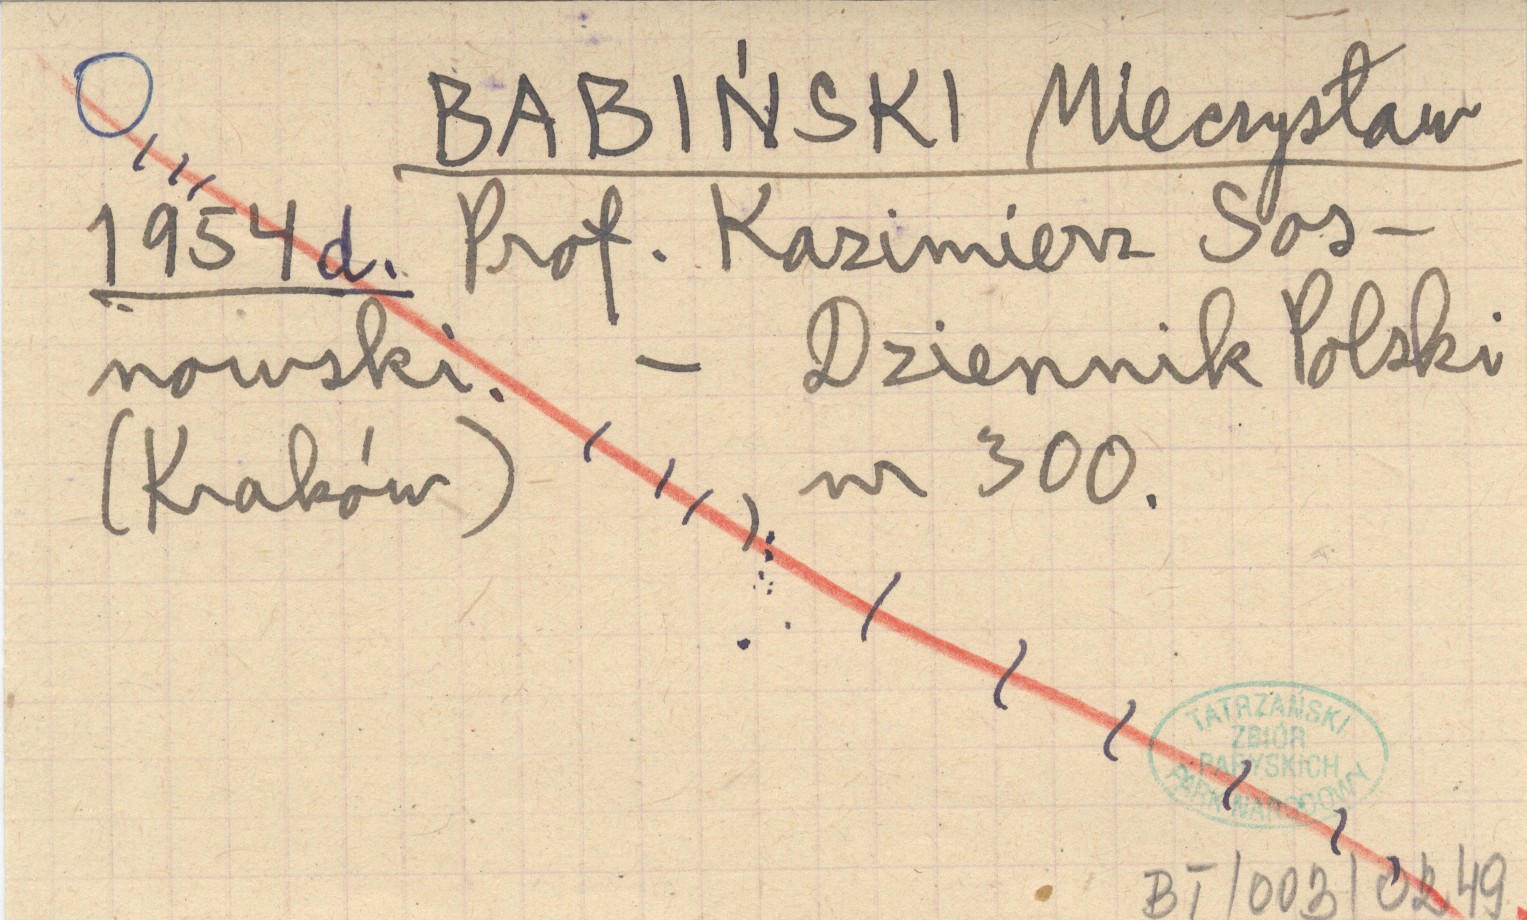 BABIŃSKI Mieczysław
1954d. Prof. Kazimierz Sos-
nowski. - Dziennik Polski
(Kraków) nr 300.
TATRZAŃSKI
ZBIÓR
PARYSKICH
PARK NARODOWY
BT/003/0249